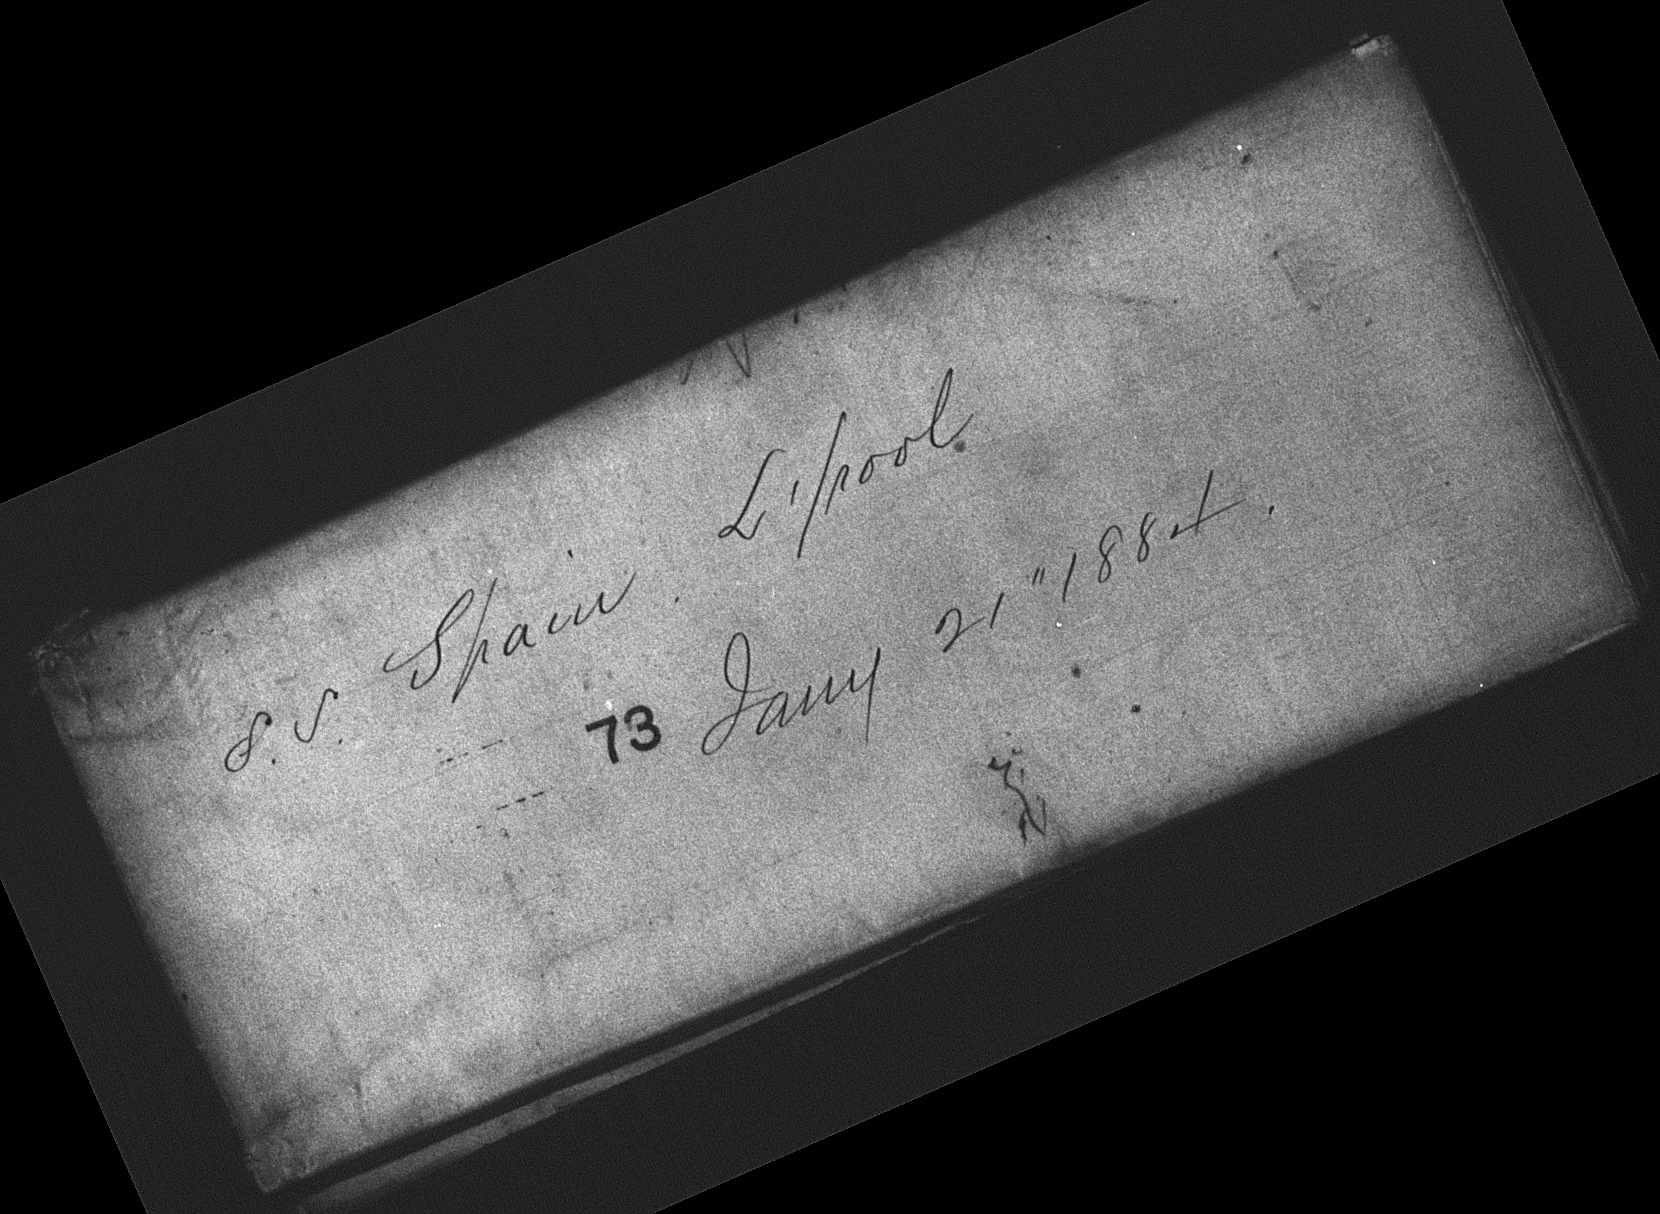 S. S. Spain. L'pool.
73 Jany 21" 1884.